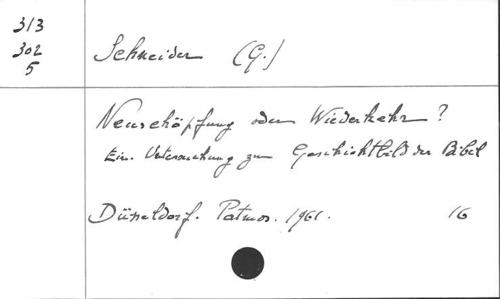 313
302
5
Schneider (G.)
Neuschöpfung oder Wiederkehr?
Ein. Untersuchung zum Geschichtbild der Bibel
Düsseldorf. Patmos. 1961. 16